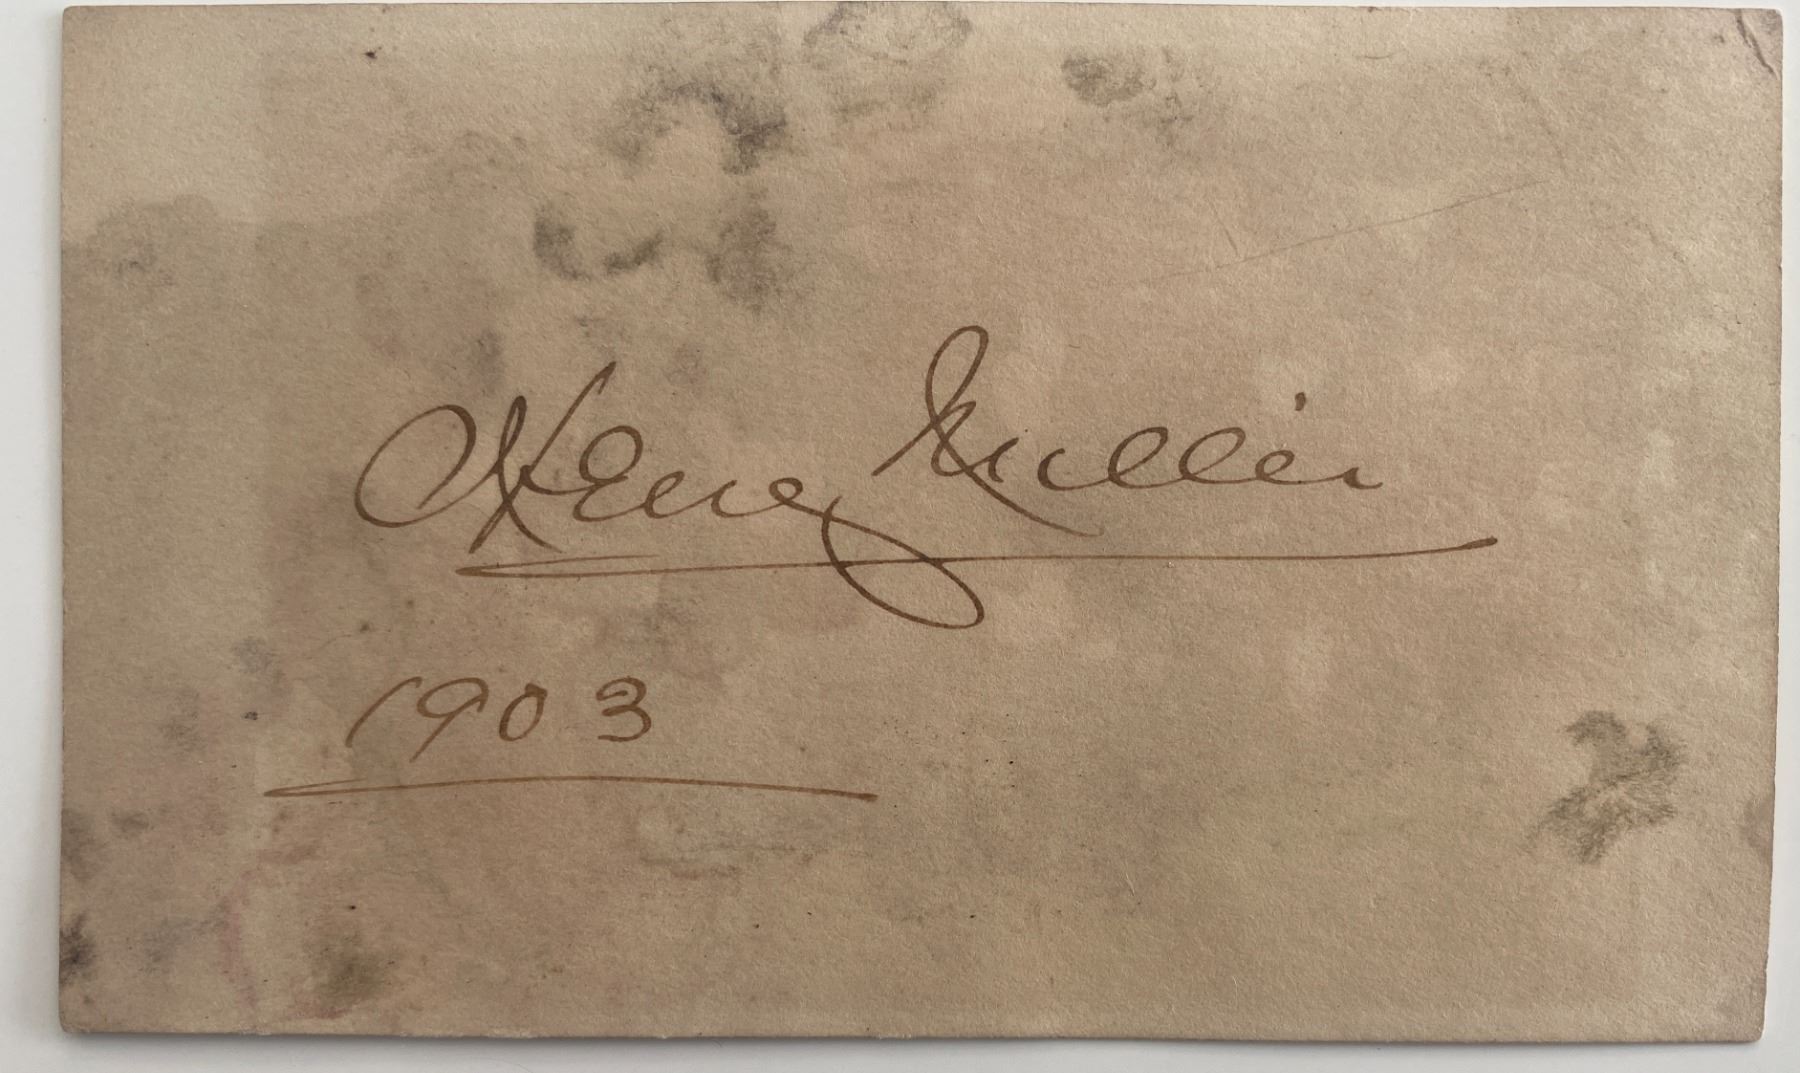 Henry Miller
1903